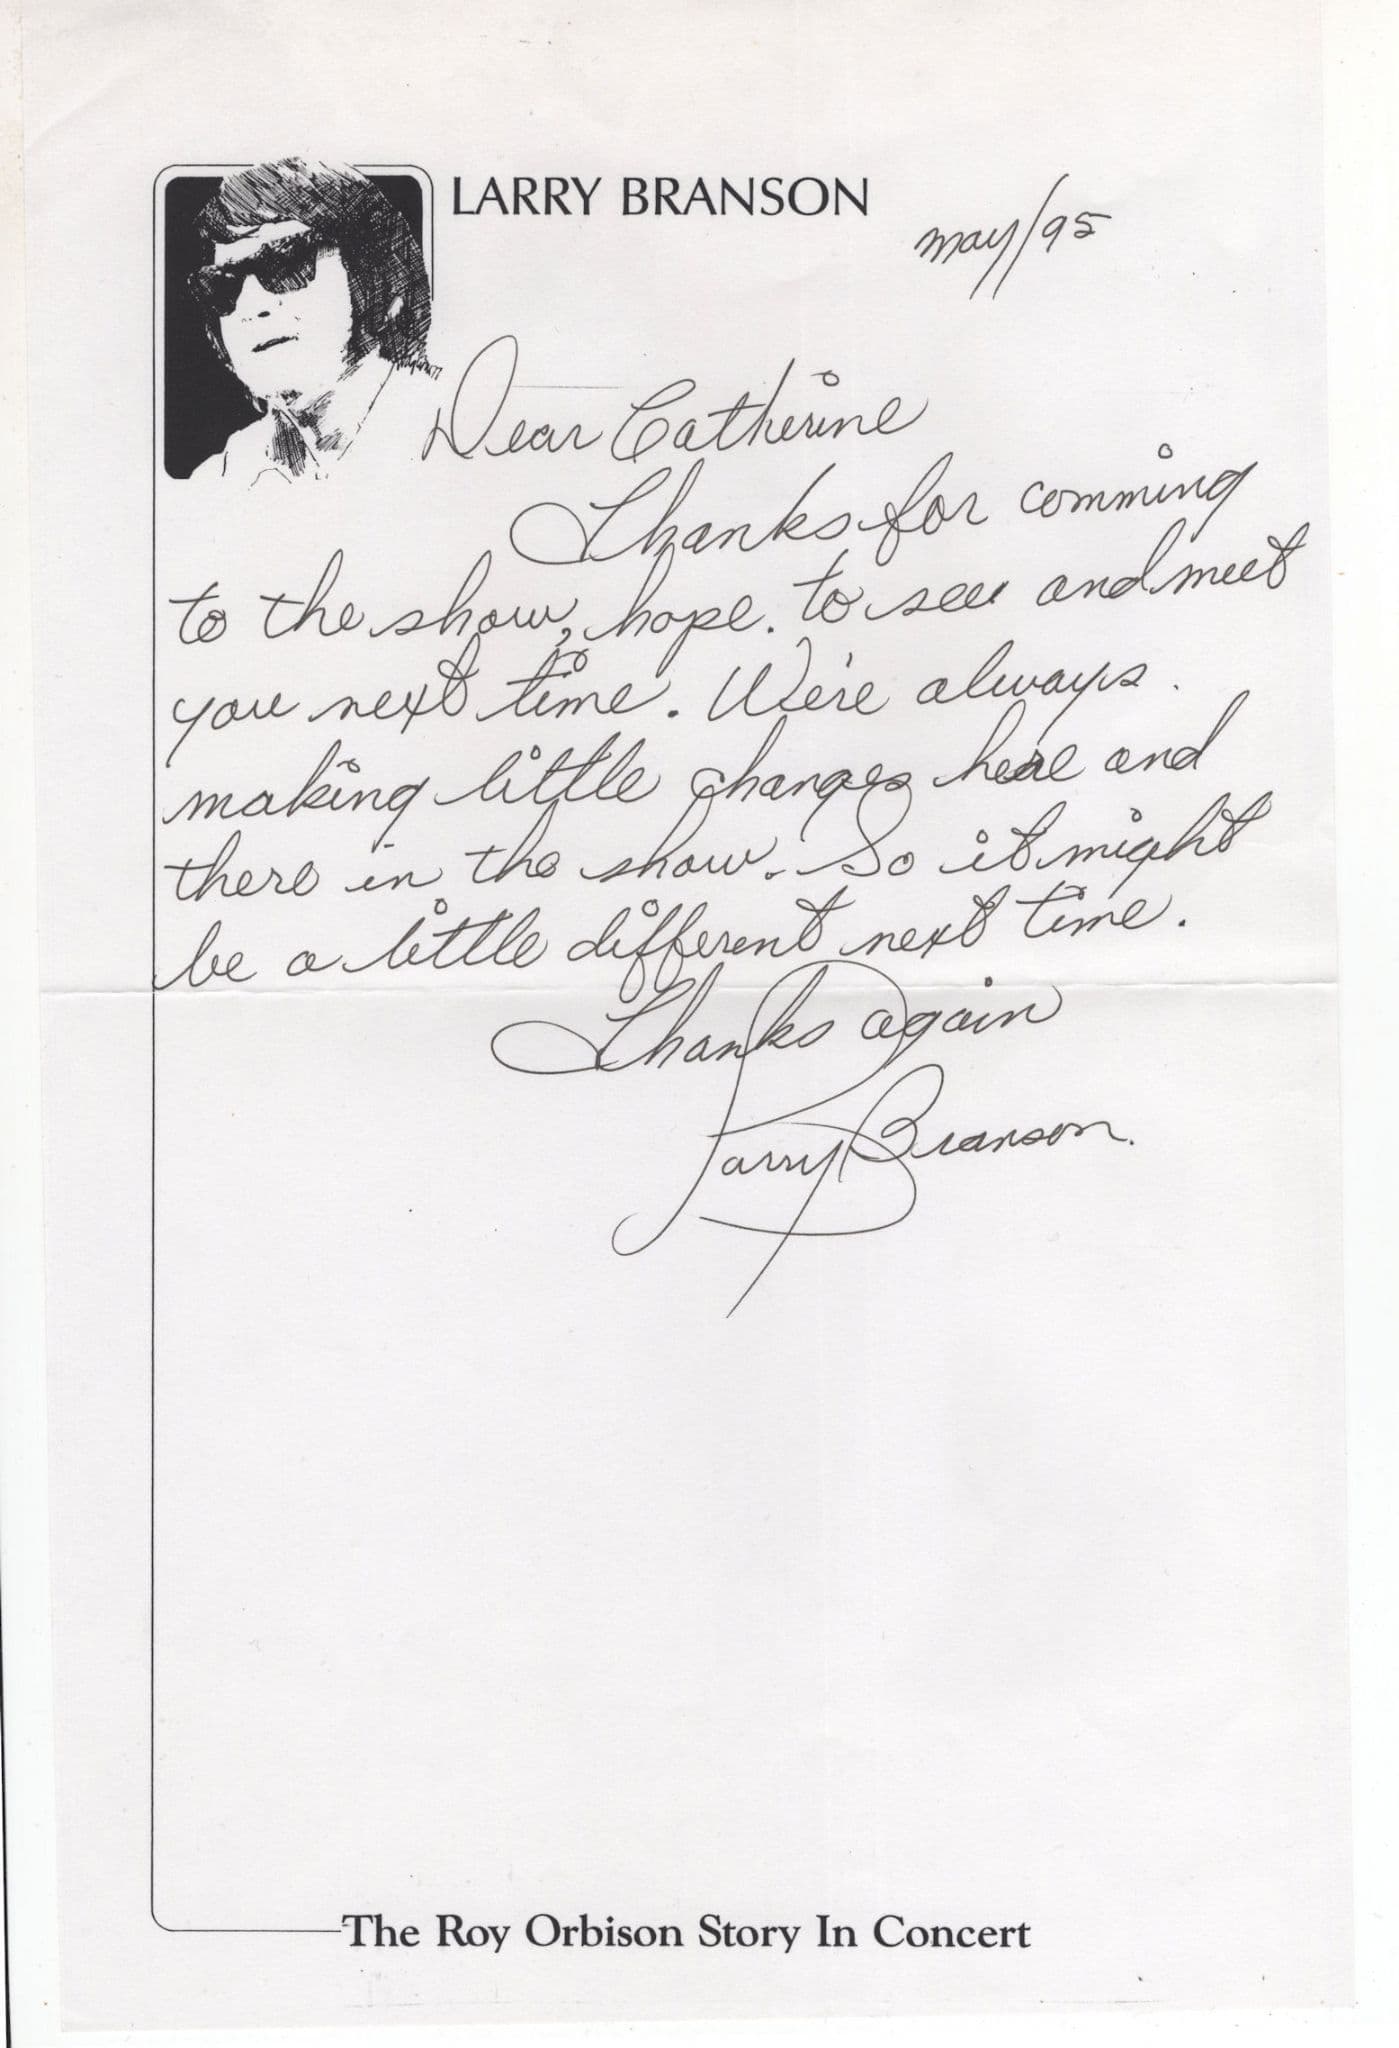 LARRY BRANSON
May/95
Dear Catherine
Thanks for comming
to the show, hope. to see and meet
you next time. We're always
making little changes here and
there in the show. So it might
be a little different next time.
Thanks again
Larry Branson.
The Roy Orbison Story In Concert